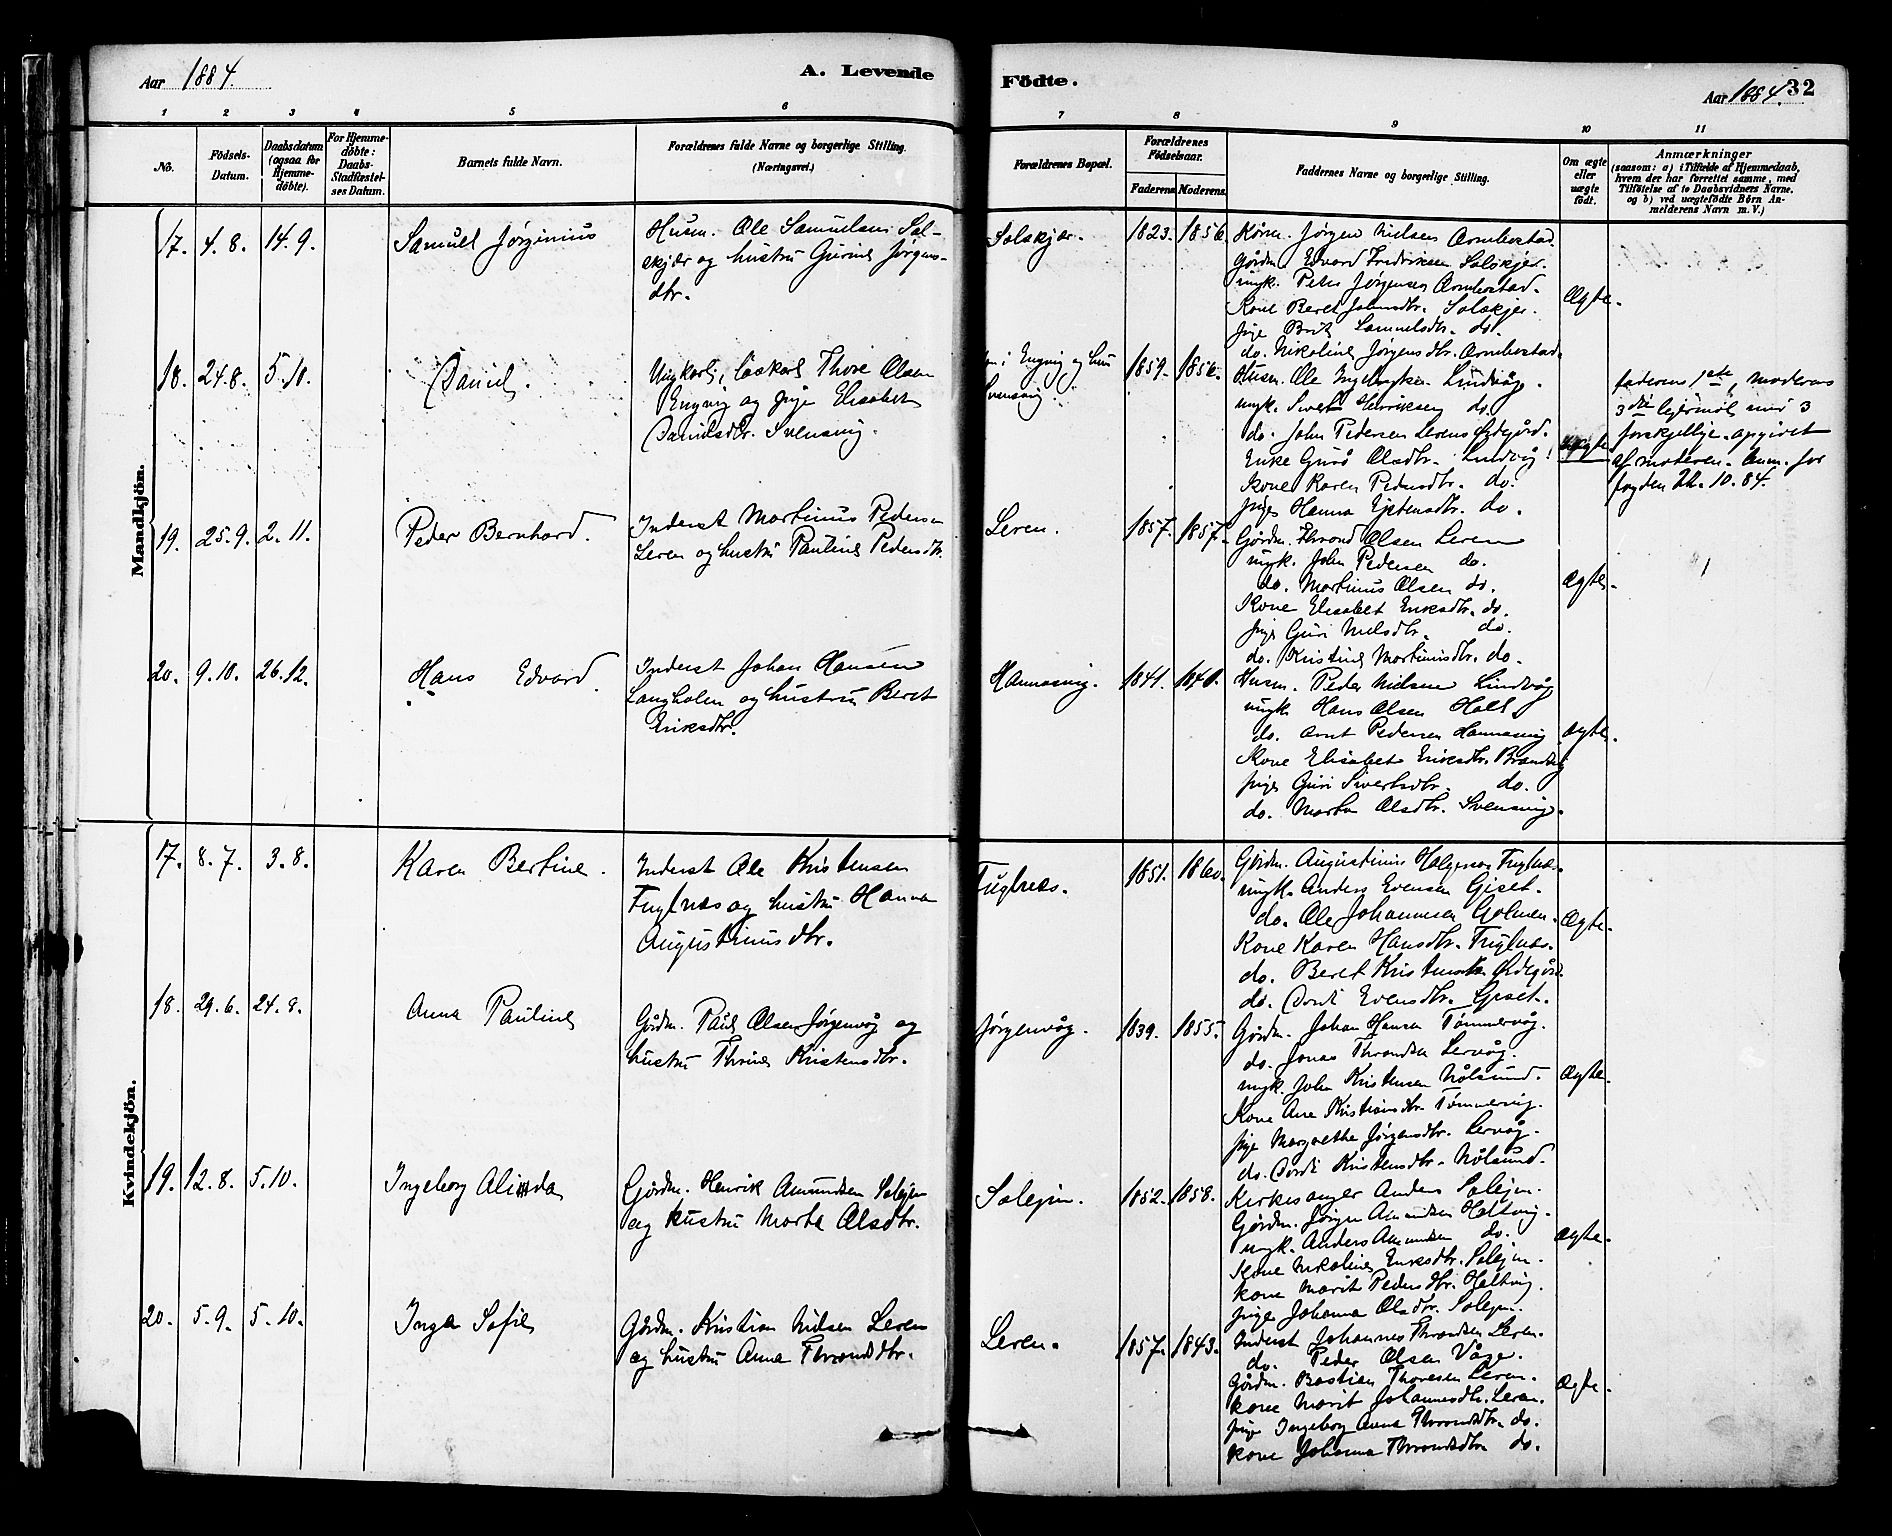 Aar 1884.
A. Levende
Födte.
Aar 1884. 32
1 2 3 4 5 6
7 8 9 10 11
No.
Födsels-
Datum.
Daabsdatum
(ogsaa for
Hjemme-
döbte).
For Hjemme-
döbte:
Daabs-
Stadfæstel-
ses Datum.
Barnets fulde Navn.
Forældrenes fulde Navne og borgerlige Stilling.
(Næringsvei.)
Forældrenes Bopæl.
Forældrenes
Födselsaar.
Faderens Moderens.
Faddernes Navne og borgerlige Stilling.
Om ægte
eller
uægte
födt.
Anmærkninger
(saasom: a) i Tilfælde af Hjemmedaab,
hvem der har forrettet samme, med
Tilföielse af to Daabsvidners Navne.
og b) ved uægtefödte Börn An-
melderens Navn m. V.)
Mandkjön.
17. 4.8. 14.9.
Samuel Jørginius
Husm. Ole Samuelsen Sol-
skjær og hustru Gurine Jørgens-
dtr.
Solskjær. 1823. 1856.
Jørgen Nielsen
Gårdm. Edvard Fredriksen Solskjer.
ungk. Peter Jørgensen
Kone Beret Solskjer.
Pige Brit Samuelsdtr. do.
do. Nikoline Jørgensdtr.
Ægte.
18. 24.8. 5.10.
Daniel.
Ungkarl, løskarl Thore Olsen
Engvig og pige Elisabet
Danielsdtr. Svensvig.
i Engvig og hun
Svensvig
1859. 1856.
Husm. Ole Lindvåg.
ungk. Sivert Henriksen do.
do. John Pedersen Lerens Ødegård.
Enke Guró Olsdtr. Lindvåg
Kone Karen Pedersdtr. do.
pige Hanna do.
uægte
faderens 1ste, moderens
3die lejermål med 3
forskjellige. opgivet
af moderen. Anm. for
fogden 22.10.84.
19. 25.9. 2.11.
Peder Bernhard.
Inderst Martinus Pedersen
Leren og hustru Pauline Pedersdtr.
Leren. 1857. 1857.
Gårdm. Thrond Olsen Leren
ungk. John Pedersen do.
do. Martinus Olsen do.
Kone Elisabet Eriksdtr. do.
pige Guri Nielsdtr. do.
do. Kristine Martinusdtr. do.
Ægte.
20. 9.10. 26.12.
Hans Edvard.
Inderst Johan Hansen
Langholen og hustru Beret
Eriksdtr.
Hannasvig. 1841. 1840.
Husm. Peder Nielsen Lindvåg
ungk. Hans Olsen Holt
do. Arnt Pedersen Hannasvig
Kone Elisabet Eriksdtr.
pige Guri Sivertsdtr. do.
do. Marta Olsdtr. Svensvig.
Ægte.
Kvindekjön.
17. 8.7. 3.8.
Karen Bertine.
Inderst Ole Kristensen
Fuglnes og hustru Hanna
Augustinusdtr.
Fuglnæs. 1851. 1860.
Gårdm. Augustinus
ungk. Anders Evensen Giset.
do. Ole Johannesen Golmen.
Kone Karen Hansdtr. Fuglnæs.
do. Beret Ødegård.
do. Dordi Evensdtr. Giset.
Ægte.
18. 29.6. 24.8.
Anna Pauline
Gårdm. Paul Olsen Jørgenvåg og
hustru Thrine Kristensdtr.
Jørgenvåg. 1839. 1855.
Gårdm. Johan Hansen Tømmervåg.
do. Jonas Throndsen Lervåg.
ungk. John Kristensen Nålsund.
Kone Ane Kristiansdtr.
pige Margrethe Jørgensdtr. Lervåg.
do. Dordi Kristensdtr. Nålsund.
Ægte.
19. 12.8. 5.10.
Ingeborg Alinda
Gårdm. Henrik Amundsen Solejen
og hustru Marta Olsdtr.
Solejen. 1852. 1858.
Kirkesanger Anders Solejen.
Gårdm. Jørgen Amundsen Holtvig.
ungk. Anders Amundsen do.
Kone Nikoline Eriksdtr. Solejen.
kone Marit Pedersdtr. Holtvig.
pige Johanna Olsdtr. Solejen.
Ægte.
20. 5.9. 5.10.
Inga Sofie
Gårdm. Kristian Nilsen Leren
og hustru Anna Throndsdtr.
Leren. 1857. 1843.
Inderst Johannes Throndsen Leren.
do. Peder Olsen Våge.
Gårdm. Bastian Thoresen Leren.
kone Marit Johannesdtr. Leren.
pige Ingeborg Anna Throndsdtr. do.
kone Johanna Throndsdtr. do.
Ægte.